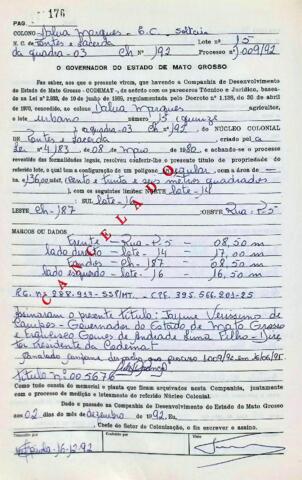 PAG. 176
COLONO Dalva Marques - E.C. Solteira
N. C. de Pontes e Lacerda Lote n.º 15
da quadra-03 Ch 192 Processo n.º 009/92
O GOVERNADOR DO ESTADO DE MATO GROSSO
Faz saber, aos que a presente virem, que havendo a Companhia de Desenvolvimento
do Estado de Mato Grosso - CODEMAT -, de acordo com os pareceres Técnico e Jurídico, basea-
da na Lei n.º 2.283, de 19 de junho de 1965, regulamentada pelo Decreto n.º 1.138, de 30 de abril
de 1970, Dalva Marques, agricultor,
lote urbano n.º 15 quinze
quadra-03 ch 192, DO NÚCLEO COLONIAL
DE Pontes e Lacerda pela
Lei 4.183 de 08 de maio de 1980, e achando-se o processo
revestido das formalidades legais, resolveu conferir-lhe o presente título de propriedade do
referido lote, o qual tem a configuração de um polígono regular com a área de
136,00 m² (cento e trinta e seis metros quadrados
), com os seguintes limites: NORTE lote-14
SUL lote-16
LESTE Ch-187 OESTE Rua-P.5
CANCELADO
MARCOS OU DADOS
Frente - Rua-P.5 - 08,50 m
lado direito - lote-14 - 17,00 m
Fundos - ch-187 - 08,50 m
lado esquerdo - lote-16 - 16,50 m
R.G. nº 288.917-SSP/MT. - CPF. 395.566.201-25
Assinaram o presente título: Jayme Verissimo de
Campos - Governador do Estado de Mato Grosso
e Francisco Gomes de Andrade Lima Filho - Dire
tor Presidente da Codemat.
Título nº 005676
Tudo como consta do memorial e planta que ficam arquivados nesta Companhia, juntamente
com o processo de medição e loteamento do referido Núcleo Colonial.
Dado e passado na Companhia de Desenvolvimento do Estado de Mato Grosso
aos 02 dias do mês de Dezembro de 1992. Eu,
Chefe do Setor de Colonização, o fiz escrever e assino.
16-12-92